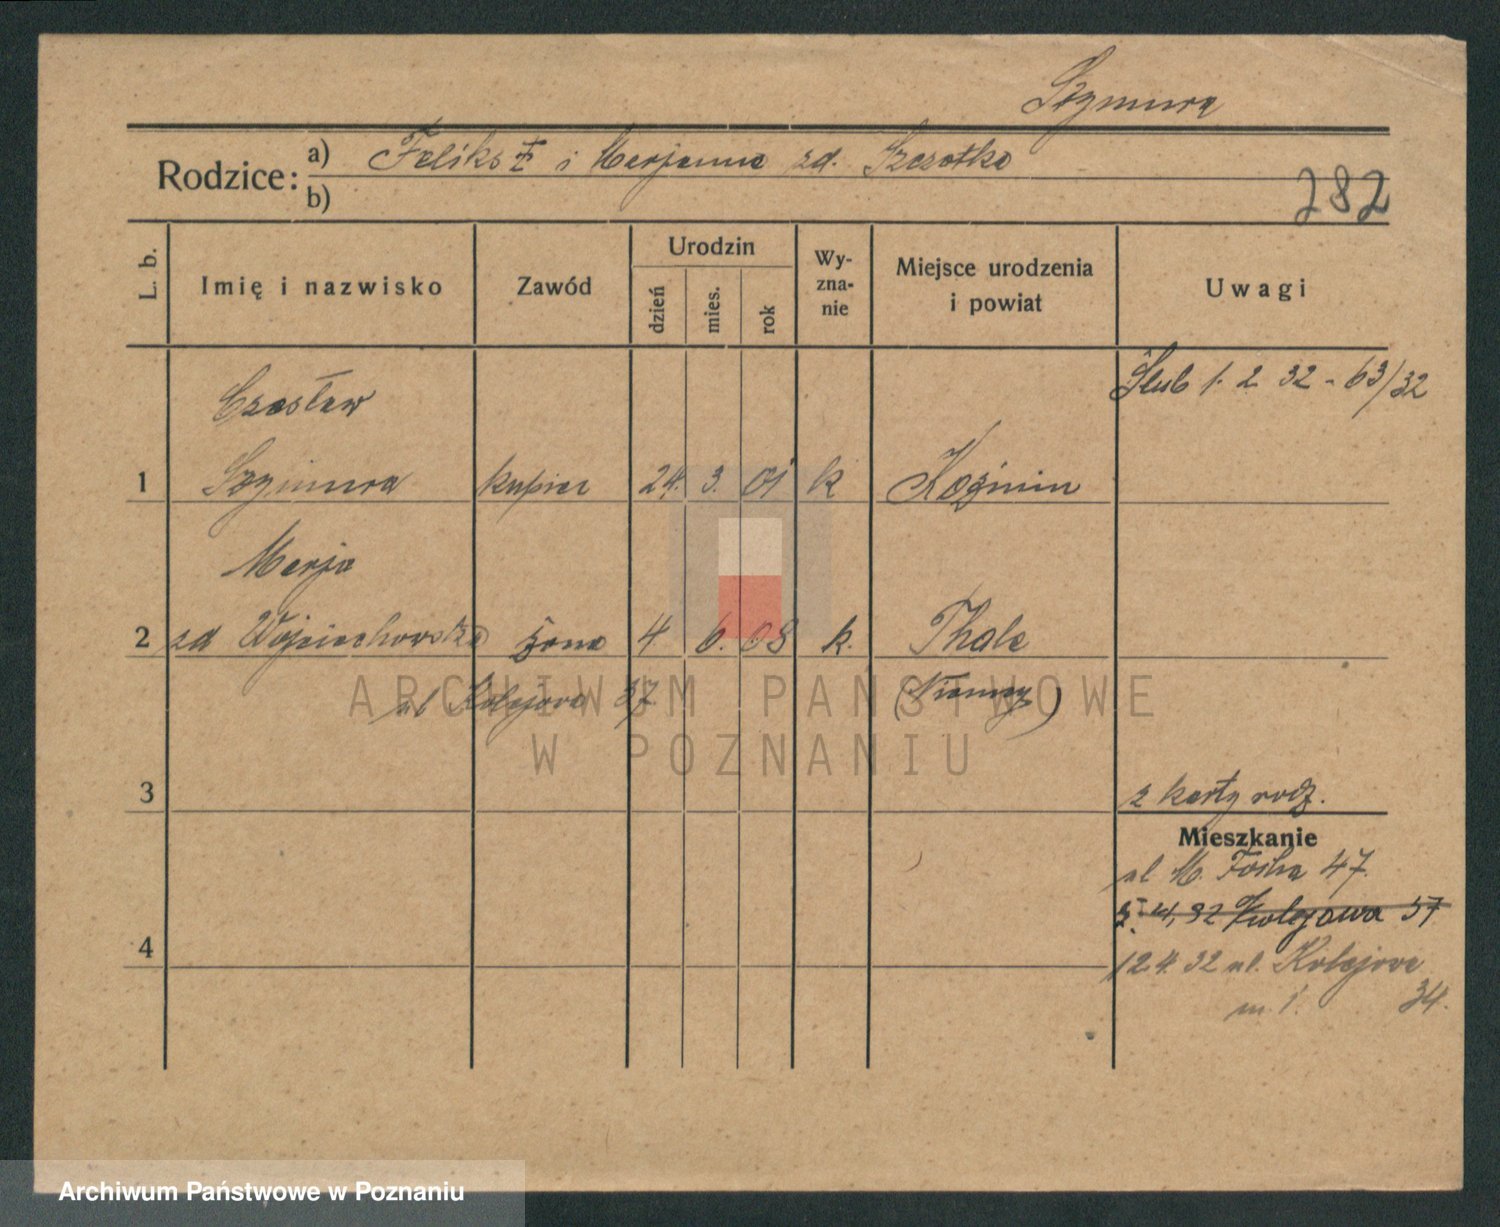 Szymura
Rodzice: a) Feliks i Marjanna zd. Szczotka
b)
282
L. b.
Imię i nazwisko
Zawód
Urodzin
dzień
mies.
rok
Wy-
zna-
nie
Miejsce urodzenia
i powiat
Uwagi
Ślub 1. 2. 32 - 63/32
Czesław
1 Szymura kupiec 24. 3. 01 k Koźmin
Marja
2 zd Wojciechowska żona 4 6. 08 k. Thale
ul Kolejowa 37. (Niemcy)
ARCHIWUM PAŃSTWOWE
W POZNANIU
3
z karty rodz.
Mieszkanie
ul M. Focha 47.
4, 32 Kolejowa 57
4
12.4.32 ul. Kolejowa
m. 1. 34.
Archiwum Państwowe w Poznaniu